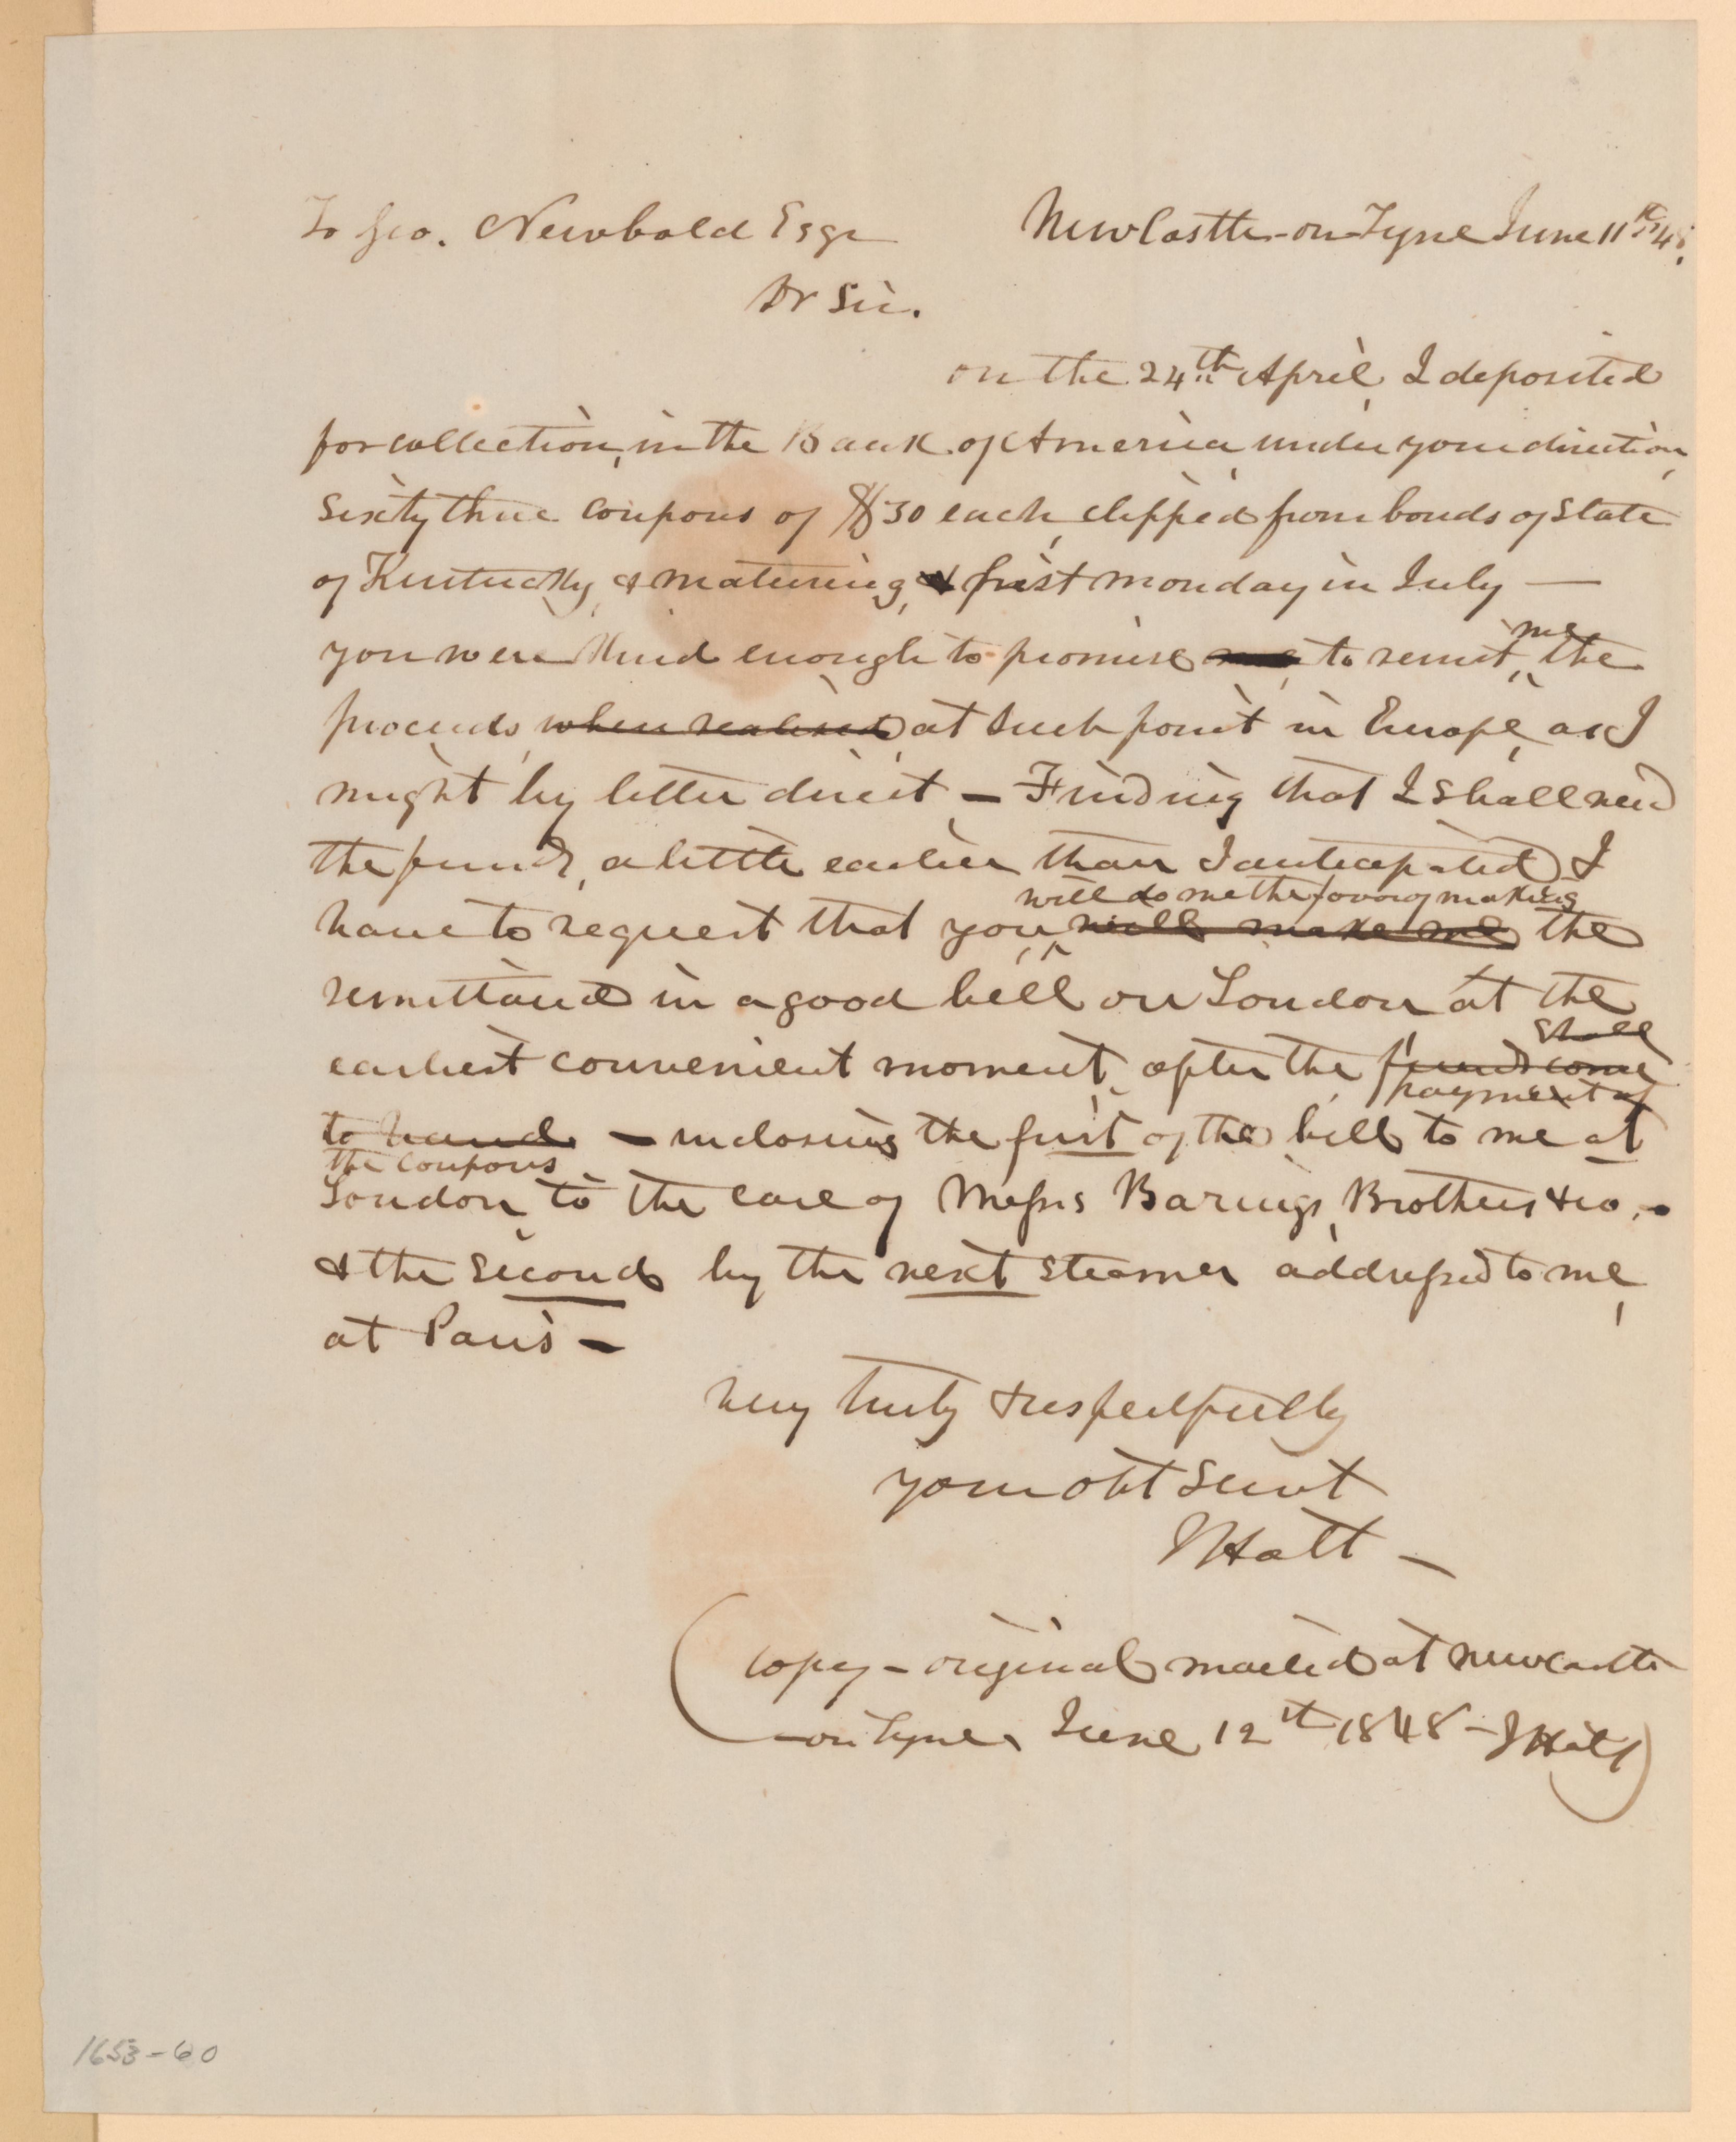 To Geo. Newbold Esqr NewCastle-on-Tyne June 11th 48.
Dr Sir.
on the 24th April, I deposited
for collection, in the Bank of America, under your direction,
sixty three coupons of $30 each, clipped from bonds of State
of Kentucky, & maturing, first monday in July —
you were kind enough to promise me, to remit, me the
proceeds, when realised, at such point in Europe, as I
might by letter direct, — Finding that I shall need
the funds, a little earlier than I anticipated, I
will do me the favor of making
have to request that you, will make me the
remittance in a good bill on London at the
shall
earliest convenient moment, after the funds come
payment of
to hand — inclosing the first of the bill to me at
the coupons
London, to the care of Messrs Barings, Brothers & co, —
& the second by the next steamer addressed to me,
at Paris —
very truly & respectfully
your obt Servt
J Hall —
(copy — original mailed at Newcastle
— on Tyne, June 12th 1848 — J Hall)
1653-60